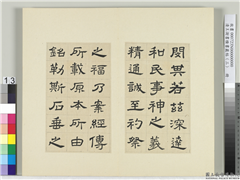 聞其若茲深達
和民事神之義
精通誠至礿祭
之福乃案經傳
所載原本所由
銘勒斯石垂之
13